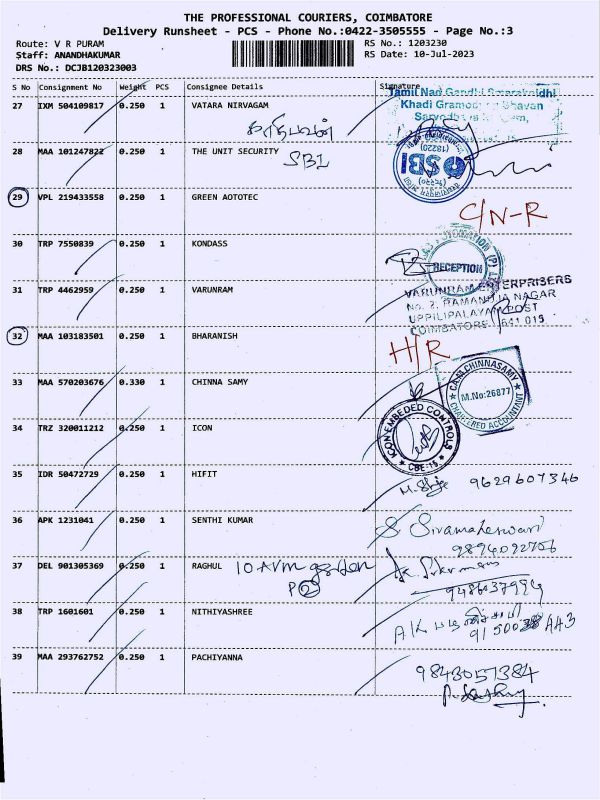 THE PROFESSIONAL COURIERS, COIMBATORE
Delivery Runsheet - PCS - Phone No.:0422-3505555 - Page No.:3
Route: V R PURAM
RS No.: 1203230
Staff: ANANDHAKUMAR
RS Date: 10-Jul-2023
DRS No.: DCJB120323003
S No Consignment No Weight PCS Consignee Details Signature
27 IXM 504109817 0.250 1 VATARA NIRVAGAM
Tamil Nad Gandhi Smaraknidhi
Khadi Gramod Bhavan
28 MAA 101247822 0.250 1 THE UNIT SECURITY SBI
SBI
(18220)
29 VPL 219433558 0.250 1 GREEN AOTOTEC
C/N-R
30 TRP 7550839 0.250 1 KONDASS
RECEPTION
31 TRP 4462959 0.250 1 VARUNRAM
VARUNRAM ENTERPRISERS
No. 2, RAMANUJA NAGAR
UPPILIPALAYAM POST
COIMBATORE - 641 015
32 MAA 103183501 0.250 1 BHARANISH
H/R
33 MAA 570203676 0.330 1 CHINNA SAMY
CA. M. CHINNASAMY
M.No:26877
CHARTERED ACCOUNTANT
34 TRZ 320011212 0.250 1 ICON
ICON EMBEDED CONTROLS
CBE-15
35 IDR 50472729 0.250 1 HIFIT
9629607346
36 APK 1231041 0.250 1 SENTHI KUMAR
S Sivamaheswari
9894092706
37 DEL 901305369 0.250 1 RAGHUL 10 AVM
P 2
38 TRP 1601601 0.250 1 NITHIYASHREE
39 MAA 293762752 0.250 1 PACHIYANNA
9843057384